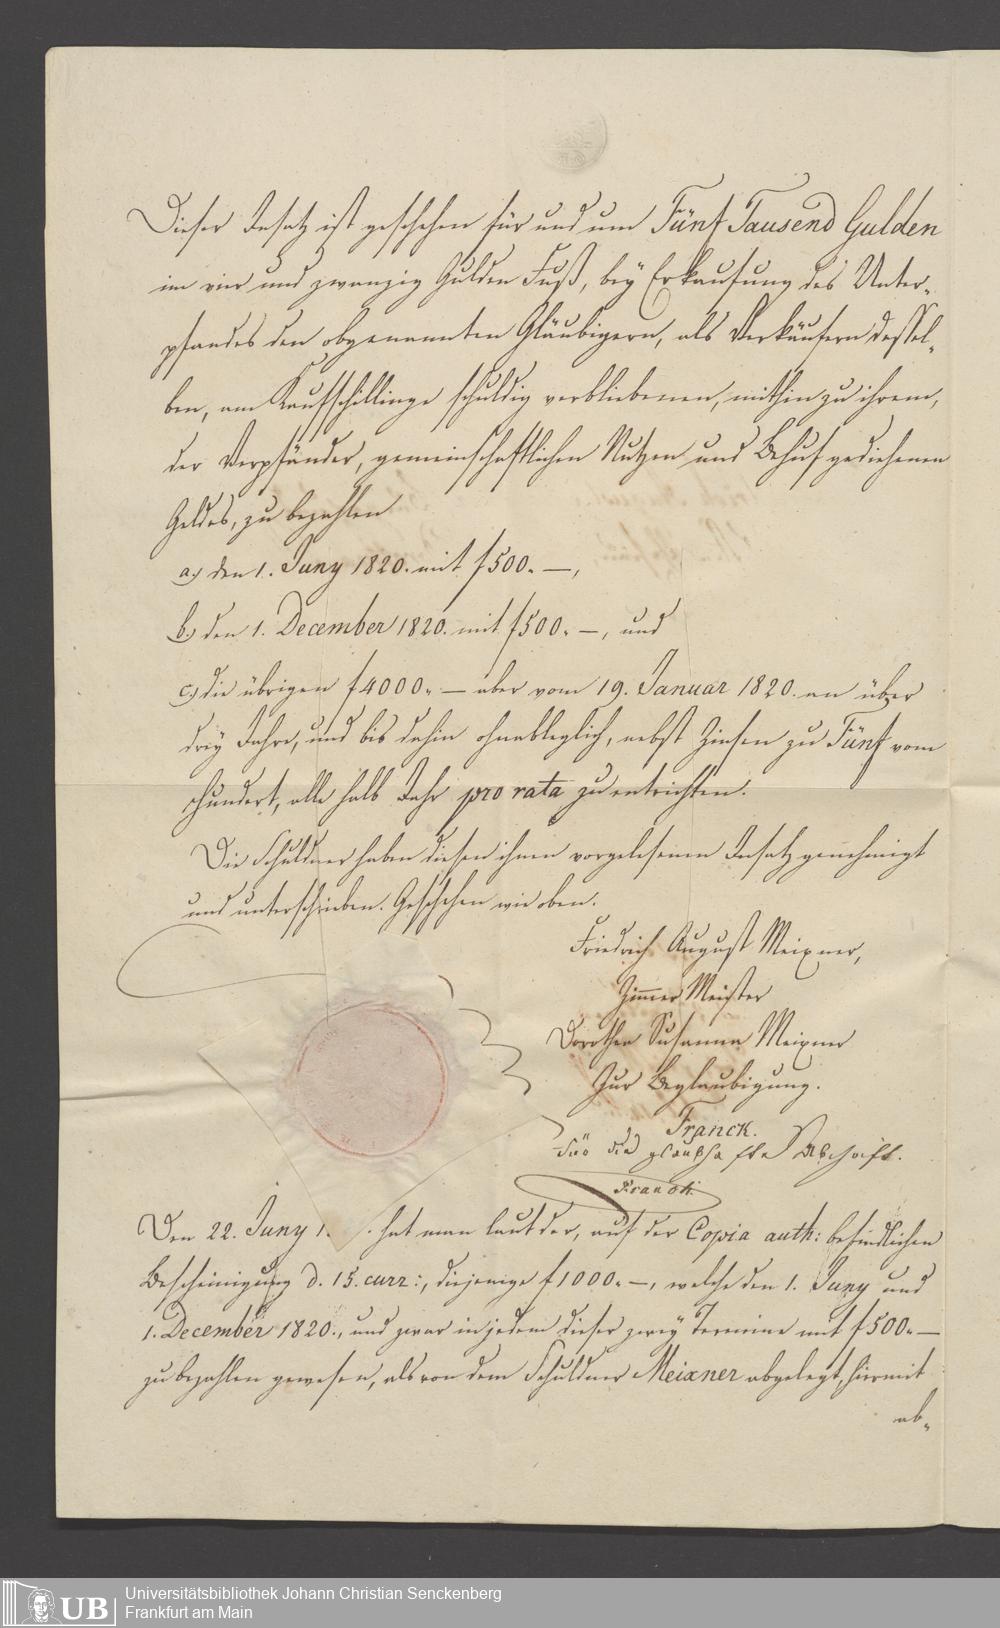 Dieser Insatz ist geschehen für und um Fünf Tausend Gulden
im vier und zwanzig Gulden Fuß, bey Erkaufung des Unter-
pfandes den obgenannten Gläubigern, als Verkäufern dessel-
ben, am Kaufschillinge schuldig verbliebenen, mithin zu ihrem,
der Verpfänder, gemeinschaftlichen Nutzen und Behuf gediehenen
Geldes, zu bezahlen
a.) den 1. Juny 1820. mit f 500. —,
b.) den 1. December 1820. mit f 500. —, und
c.) die übrigen f 4000. — aber vom 19. Januar 1820. an über
drey Jahre, und bis dahin ohnableglich, nebst Zinsen zu Fünf vom
Hundert, alle halb Jahr pro rata zu entrichten.
Die Schuldner haben diesen ihnen vorgelesenen Insatz genehmigt
und unterschrieben. Geschehen wie oben.
Friedrich August Meixner,
Zimmer Meister
Dorothea Susanna Meixner
Zur Beglaubigung.
Franck.
Für die glaubhafte Abschrift.
Franck
Den 22. Juny 1. hat man laut der, auf der Copia auth: befindlichen
Bescheinigung d. 15. curr:, diejenige f 1000. —, welche den 1. Juny und
1. December 1820., und zwar in jedem dieser zwey Termine mit f 500. —
zu bezahlen gewesen, als von dem Schuldner Meixner abgelegt, hiermit
ab-
UB
Universitätsbibliothek Johann Christian Senckenberg
Frankfurt am Main